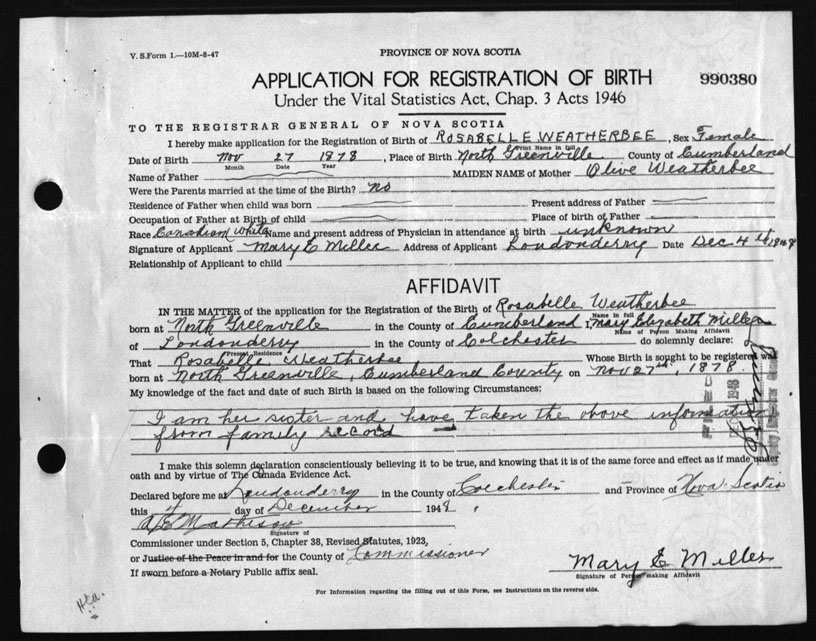 V. S. Form 1.—10M-8-47
PROVINCE OF NOVA SCOTIA
APPLICATION FOR REGISTRATION OF BIRTH
990380
Under the Vital Statistics Act, Chap. 3 Acts 1946
TO THE REGISTRAR GENERAL OF NOVA SCOTIA
I hereby make application for the Registration of Birth of ROSABELLE WEATHERBEE, Sex Female
Print Name in full
Date of Birth Nov 27 1878, Place of Birth North Greenville County of Cumberland
Month Date Year
Name of Father MAIDEN NAME of Mother Olive Weatherbee
Were the Parents married at the time of the Birth? no
Residence of Father when child was born Present address of Father
Occupation of Father at Birth of child Place of birth of Father
Race Canadian White Name and present address of Physician in attendance at birth unknown
Signature of Applicant Mary E Miller Address of Applicant Londonderry Date Dec 4th 1948
Relationship of Applicant to child
AFFIDAVIT
IN THE MATTER of the application for the Registration of the Birth of Rosabelle Weatherbee
Name in full
born at North Greenville in the County of Cumberland I, Mary Elizabeth Miller
Name of Person Making Affidavit
of Londonderry in the County of Colchester do solemnly declare:
Present Residence
That Rosabelle Weatherbee Whose Birth is sought to be registered was
born at North Greenville, Cumberland County on Nov 27th, 1878.
My knowledge of the fact and date of such Birth is based on the following Circumstances:
I am her sister and have taken the above information
from family record
I make this solemn declaration conscientiously believing it to be true, and knowing that it is of the same force and effect as if made under
oath and by virtue of The Canada Evidence Act.
Declared before me at Londonderry in the County of Colchester and Province of Nova Scotia
this 4 day of December 1948
A E Matheson
Signature of
Commissioner under Section 5, Chapter 38, Revised Statutes, 1923,
or Justice of the Peace in and for the County of Commissioner
If sworn before a Notary Public affix seal.
Mary E Miller
Signature of Person making Affidavit
For Information regarding the filling out of this Form, see Instructions on the reverse side.